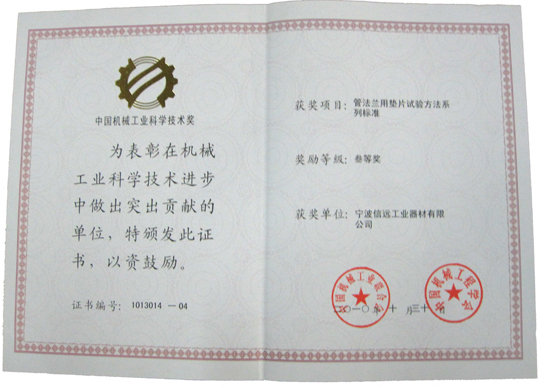 中国机械工业科学技术奖
为表彰在机械
工业科学技术进步
中做出突出贡献的
单位，特颁发此证
书，以资鼓励。
证书编号：1013014－04
获奖项目：管法兰用垫片试验方法系
列标准
奖励等级：叁等奖
获奖单位：宁波信远工业器材有限
公司
中国机械工业联合会
中国机械工程学会
二〇一〇年十月三十